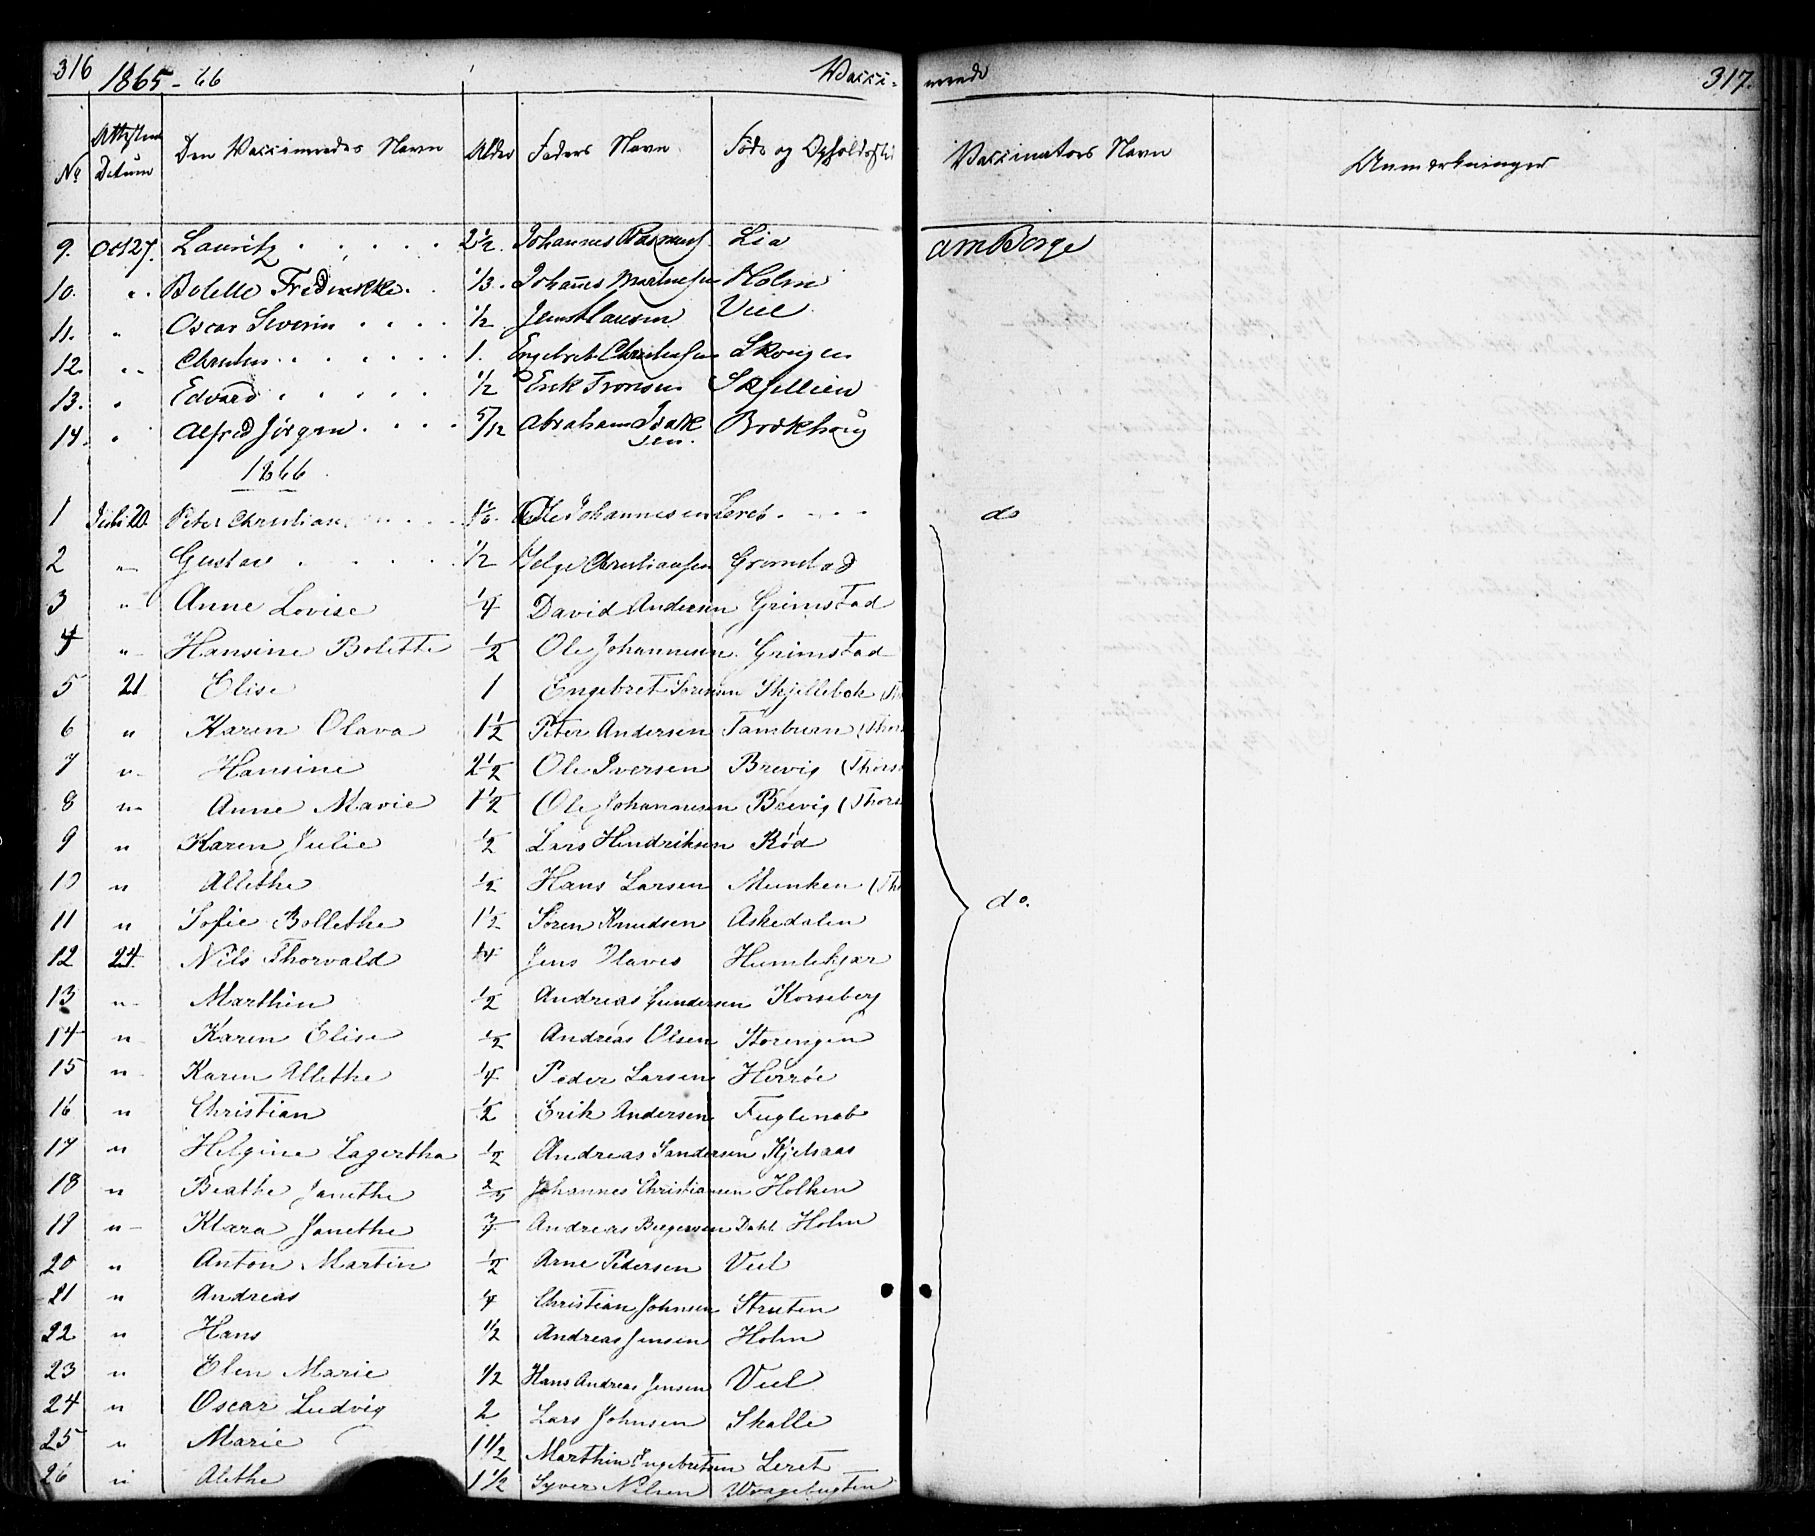 316 1865-66 Vacci- nerede 317.
No Attestens Datum Den Vaccineredes Navn Alder Faders Navn Føde og Opholdssted Vaccinators Navn Anmerkninger
9. Oct 27. Lauritz 2 1/2. Johannes Lia am Borge
10. " Bolette Fredrikke 1/3. Johannes Martinsen Holm
11. " Oscar Severin 1/2 Jens Hansen Viel
12. " 1. Engebret Christensen Skougen
13. " Edvard 1/2 Erik Tronsen Skjellien
14. " Alfred Jörgen 5/12 Abraham Isaksen Brækhoug
1866
1 20 Peter Christian Ole Johannesen Leret do
2 " Gustav 1/2 Helge Christiansen Grimstad
3 " Anne Lovise 1/4 David Andersen Grimstad
4 " Hansine Bolette 1/2 Ole Johannesen Grimstad
5 21 Elise 1 Engebret Sørensen Skjellebek
6 " Karen Olava 1 1/2 Peter Andersen Tamburn (Thors
7 " Hansine 2 1/2 Ole Iversen Brevig (Thors
8 " Anne Marie 1 1/2 Ole Johannesen Brevig (Thors
9 " Karen Julie 1/2 Lars Hendriksen Rød
10 " Allethe 1/2 Hans Larsen Munken (Tho do.
11 " Sofie Bollethe 1 1/2 Søren Knudsen Askedalen
12 24 Nils Thorvald 1/4 Jens Olaves Humlekjær
13 " Marthin 1/2 Andreas Gundersen Korseberg
14 " Karen Elise 1/2 Andreas Olsen Storengen
15 " Karen Allethe 1/4 Peder Larsen Herrøe
16 " Christian 1/2 Erik Andersen Fuglenab
17 " Helgine Lagertha 1/2 Andreas Sandersen Kjelsaas
18 " Beathe Janethe Johannes Christiansen Holken
19 " Klara Janethe Andreas Birgersen Dahl Holm
20 " Anton Martin 1/2 Arne Pedersen Viel
21 " Andreas 1/4 Christian Johnsen Struten
22 " Hans 1/2 Andreas Jensen Holm
23 " Elen Marie 1/2 Hans Andreas Jensen Viel
24 " Oscar Ludvig 2 Lars Johnsen Skalle
25 " Marie 1 1/2 Marthin Engebretsen Leret
26 " Alethe 1 1/2 Syver Nilsen Wragebugten